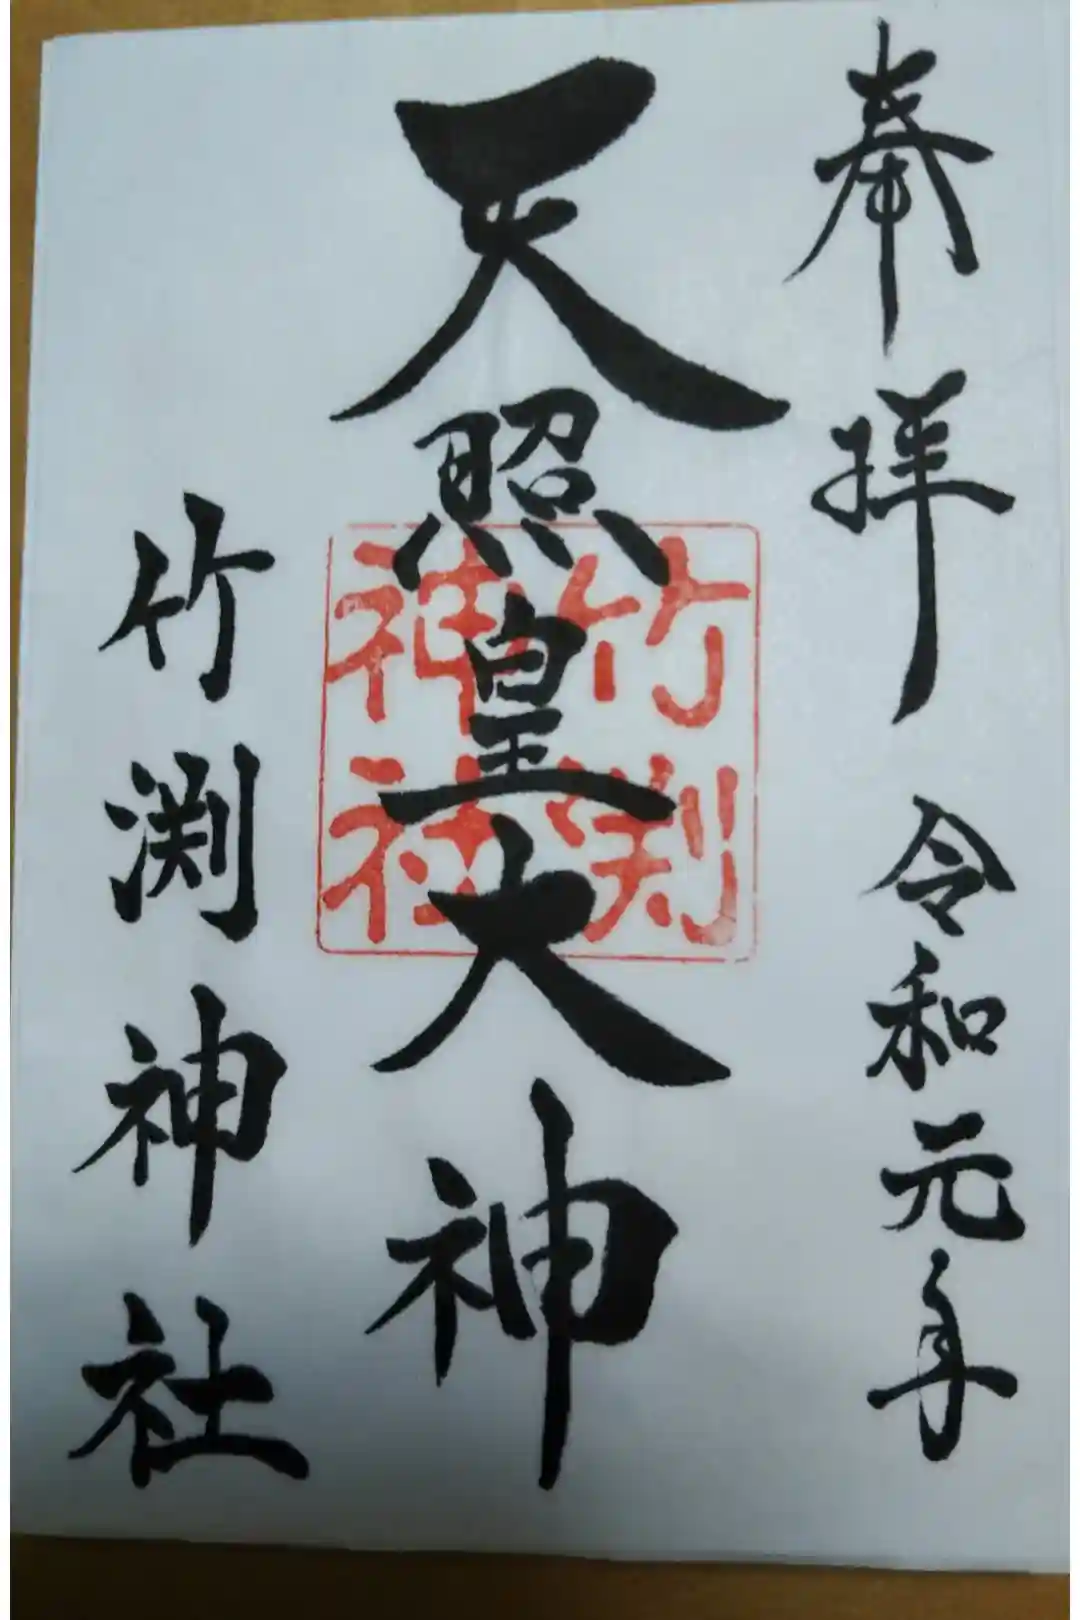 奉拝 令和元年
天照皇大神
竹渕
神社
竹渕神社